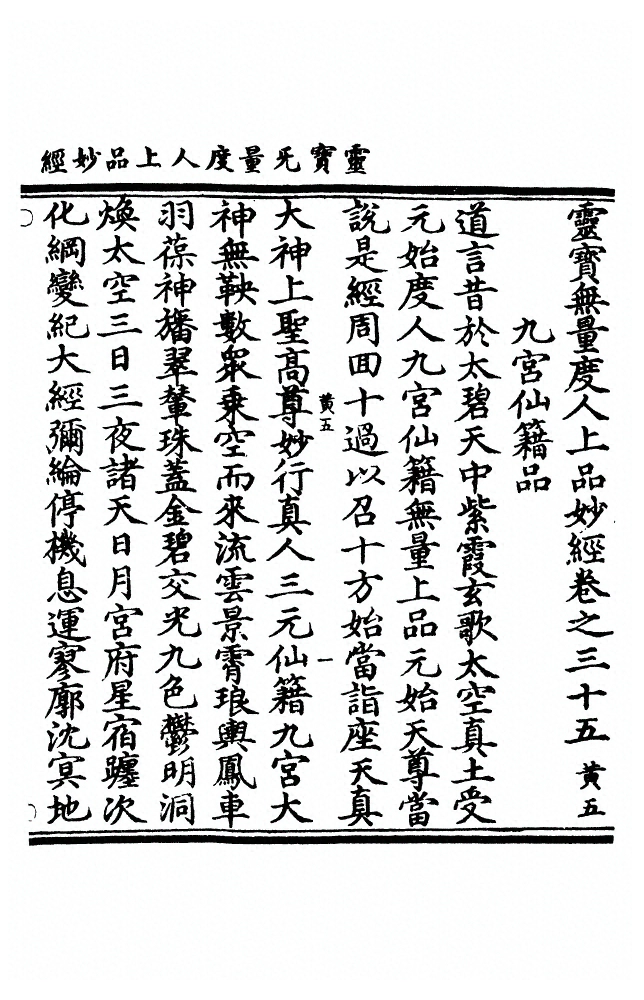 靈寶无量度人上品妙經
靈寶無量度人上品妙經卷之三十五 黃五
九宮仙籍品
道言昔於太碧天中紫霞玄歌太空真土受
元始度人九宮仙籍無量上品元始天尊當
說是經周回十過以召十方始當詣座天真
黃五 一
大神上聖高尊妙行真人三元仙籍九宮大
神無鞅數衆乗空而來流雲景霄琅輿鳳車
羽葆神旛翠輦珠蓋金碧交光九色鬱明洞
煥太空三日三夜諸天日月宮府星宿躔次
化綱變紀大經彌綸停機息運寥廓沈冥地